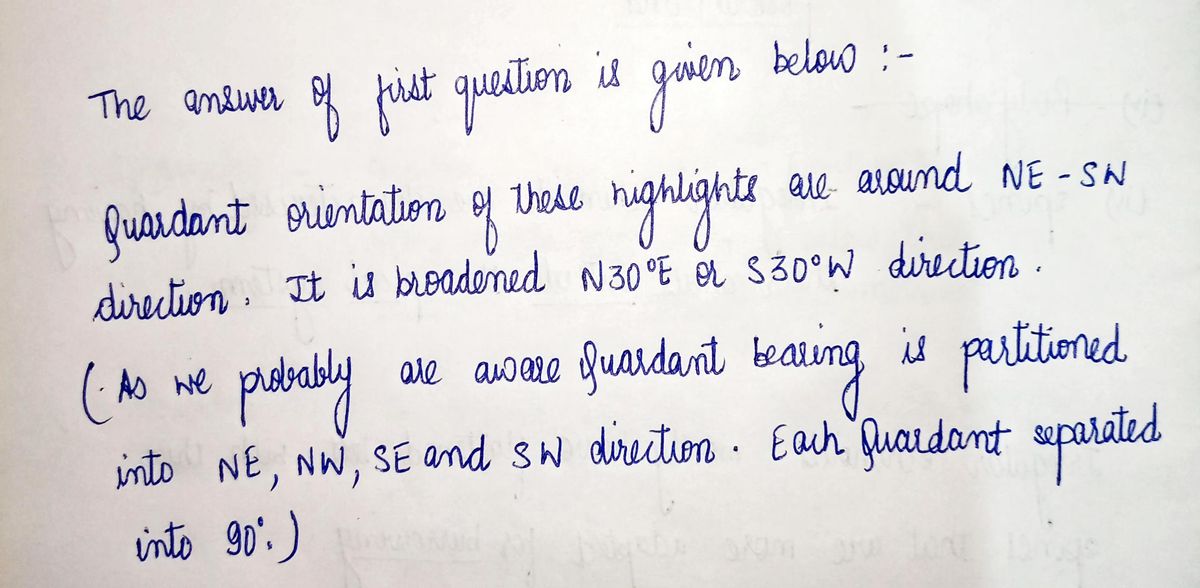 The answer of first question is given below :-
Quardant orientation of these highlights are around NE - SW
direction. It is broadened N30°E or S30°W direction.
(As we probably are aware Quardant bearing is partitioned
into NE, NW, SE and SW direction. Each Quardant separated
into 90°.)